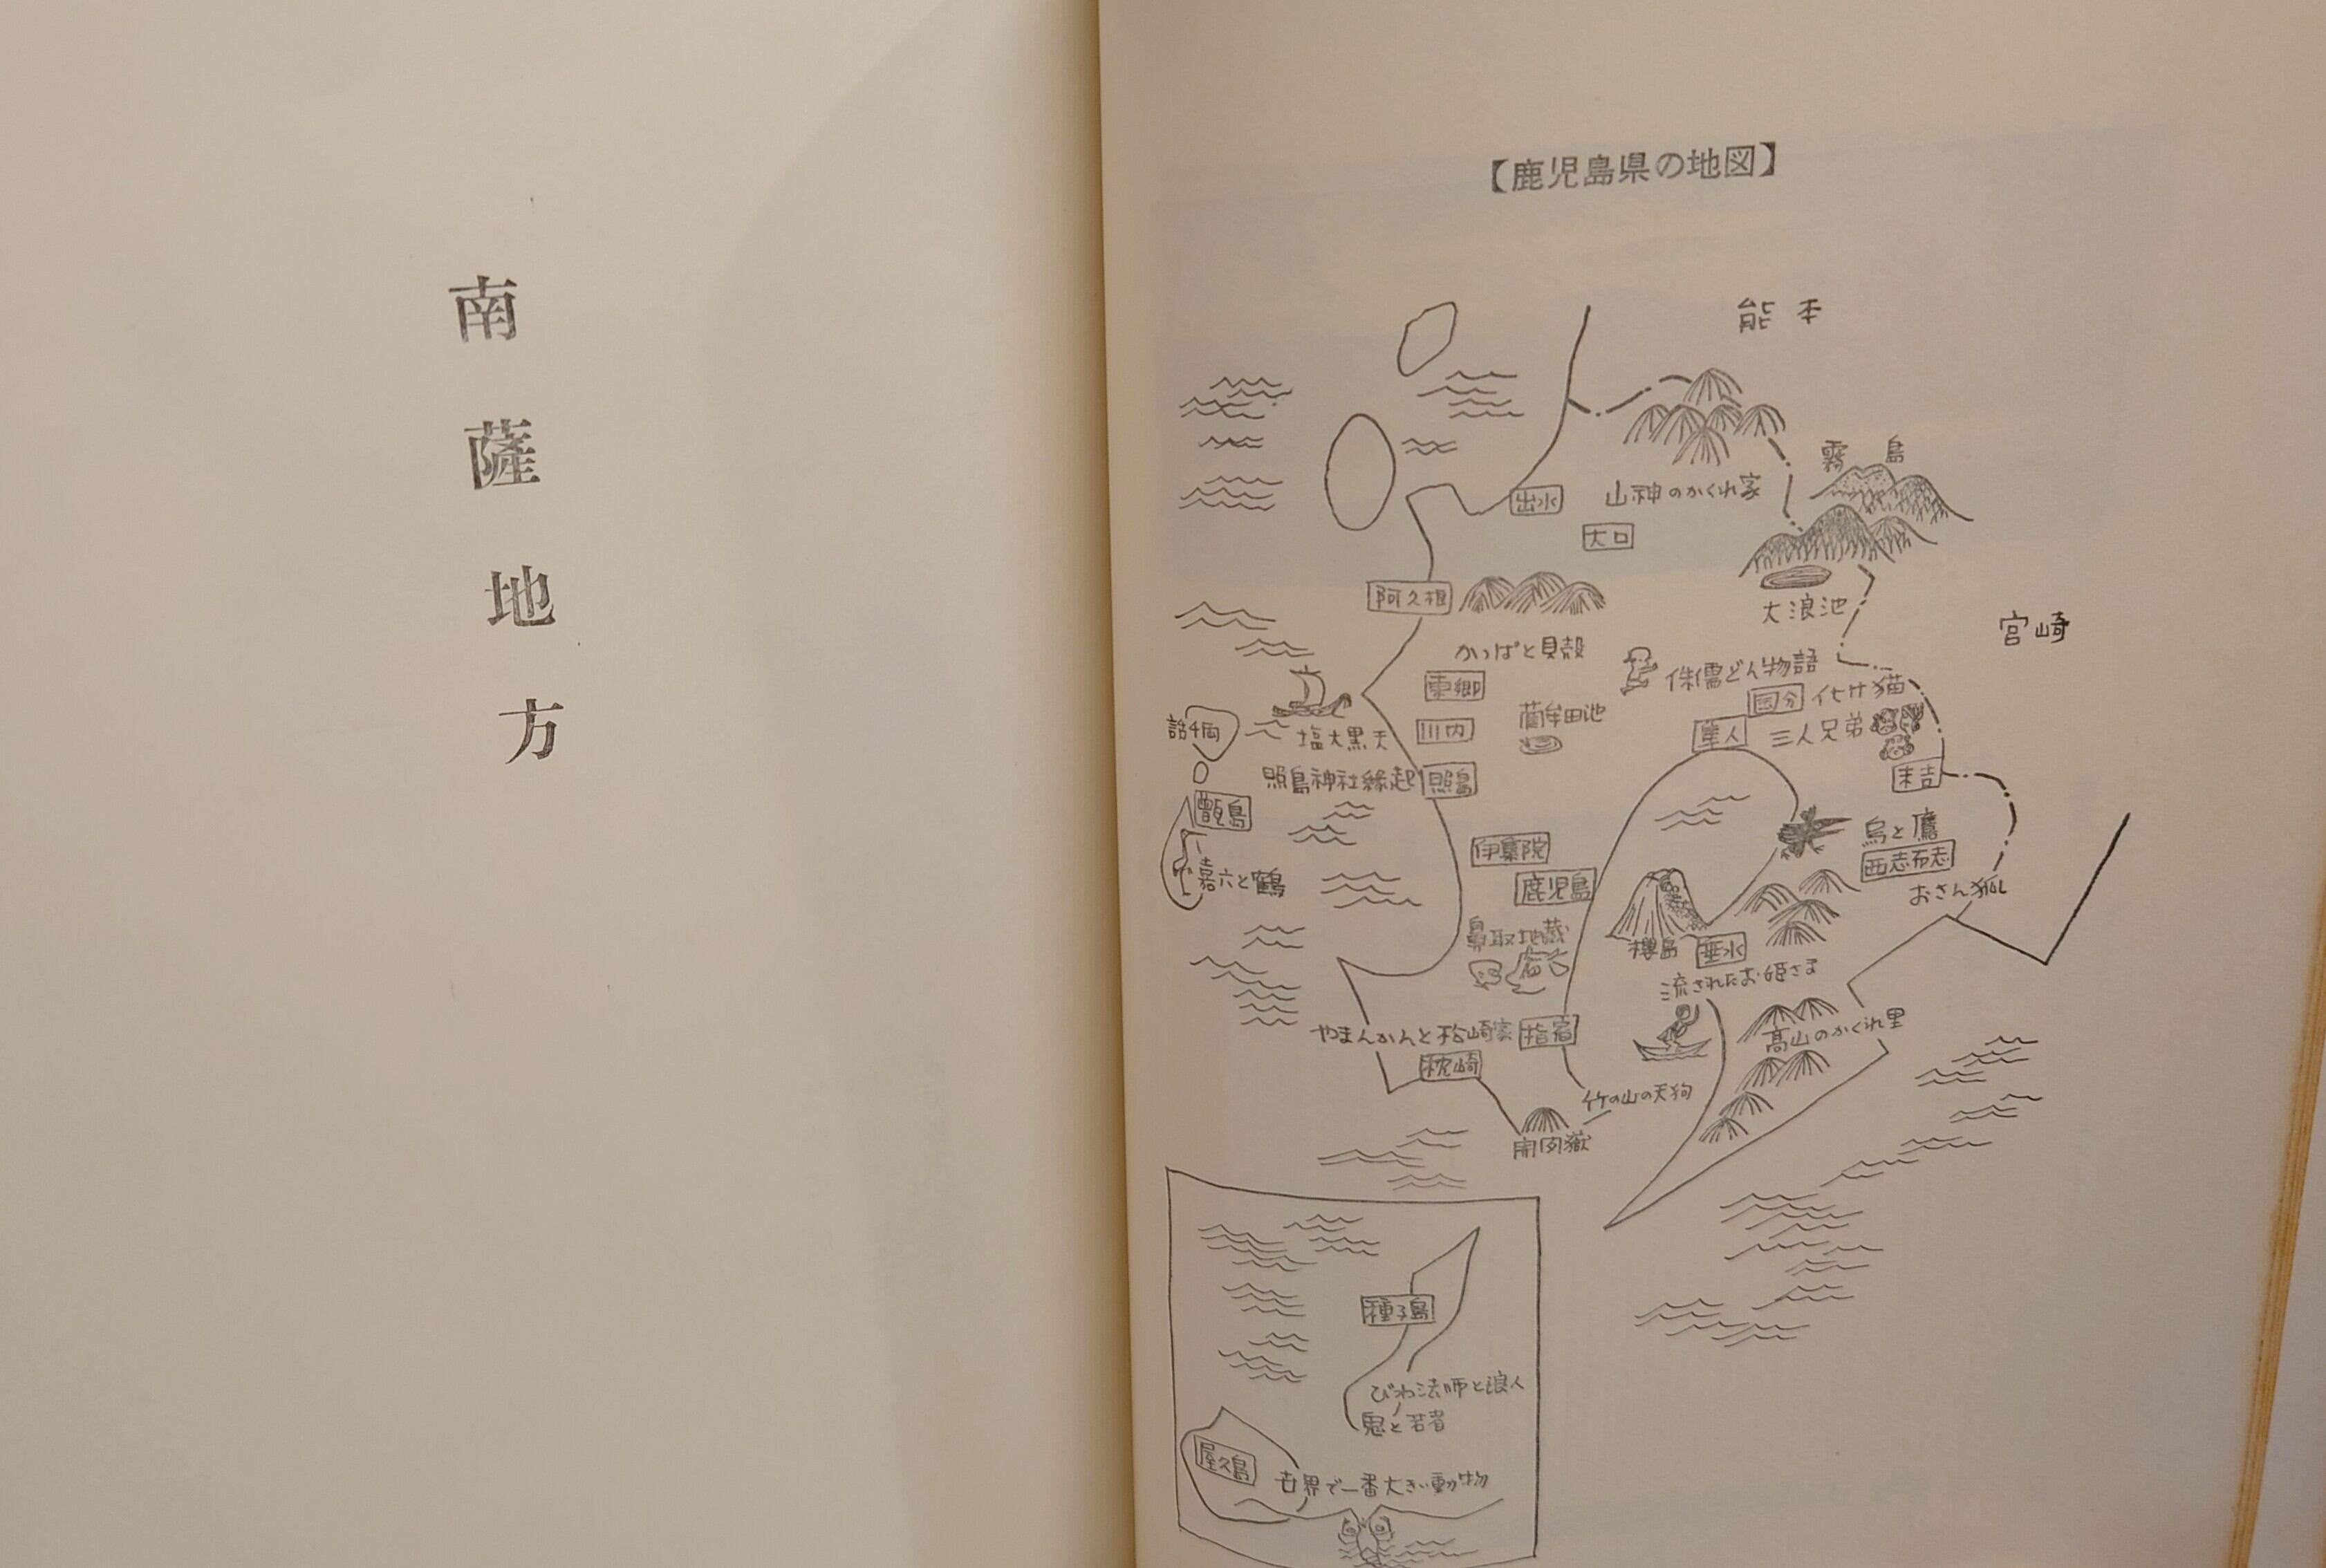 南薩地方
【鹿児島県の地図】
熊本
霧島
出水
山神のかくれ家
大口
阿久根
大浪池
宮崎
かっぱと貝殻
侏儒どん物語
東郷
国分
化け猫
藺牟田池
川内
隼人
三人兄弟
塩大黒天
照島神社縁起
照島
末吉
甑島
烏と鷹
伊集院
西志布志
嘉六と鶴
鹿児島
おさん狐
鼻取地蔵
櫻島
垂水
流されたお姫さま
やまんかんと松崎家
指宿
高山のかくれ里
枕崎
竹の山の天狗
開聞嶽
種子島
びわ法師と浪人
鬼と若者
屋久島
世界で一番大きい動物